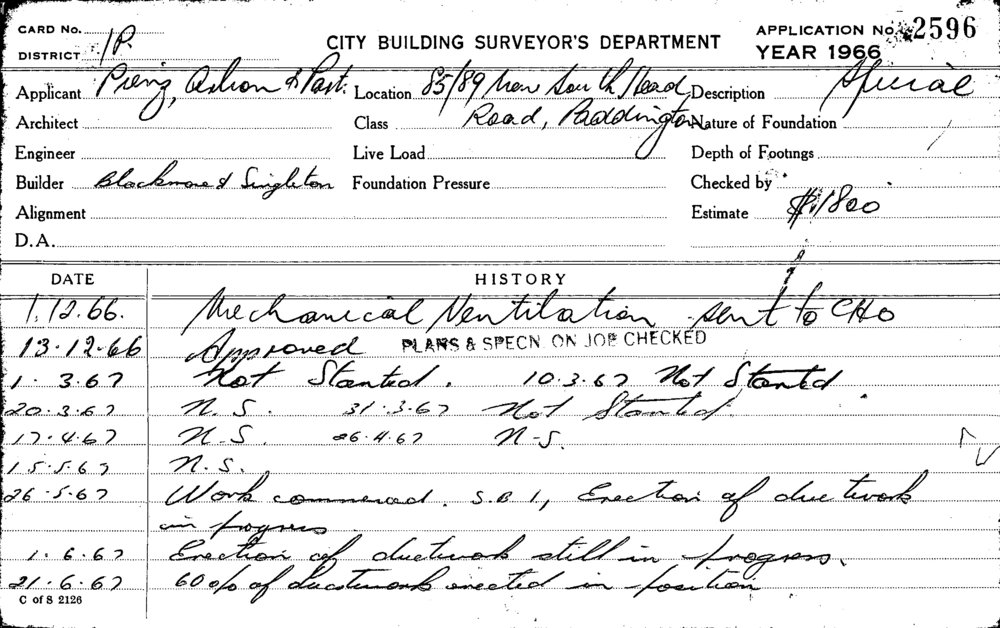 CARD No.
DISTRICT 1P.
CITY BUILDING SURVEYOR'S DEPARTMENT
APPLICATION No. 2596
YEAR 1966
Applicant & Part. Location 85/89 New South Head Description Special
Architect Class Road, Paddington Nature of Foundation
Engineer Live Load Depth of Footings
Builder Blackmore & Singleton Foundation Pressure Checked by
Alignment Estimate $1800
D.A.
DATE HISTORY
1.12.66. Mechanical Ventilation sent to CHO
13.12.66 Approved PLANS & SPECN ON JOB CHECKED
1.3.67 Not Started. 10.3.67 Not Started
20.3.67 N.S. 31.3.67 Not Started.
17.4.67 N.S. 26.4.67 N.S.
15.5.67 N.S.
26.5.67 Work commenced. S.B 1, Erection of ductwork
in progress
1.6.67 Erection of ductwork still in progress.
21.6.67 60% of ductwork erected in position
C of S 2126